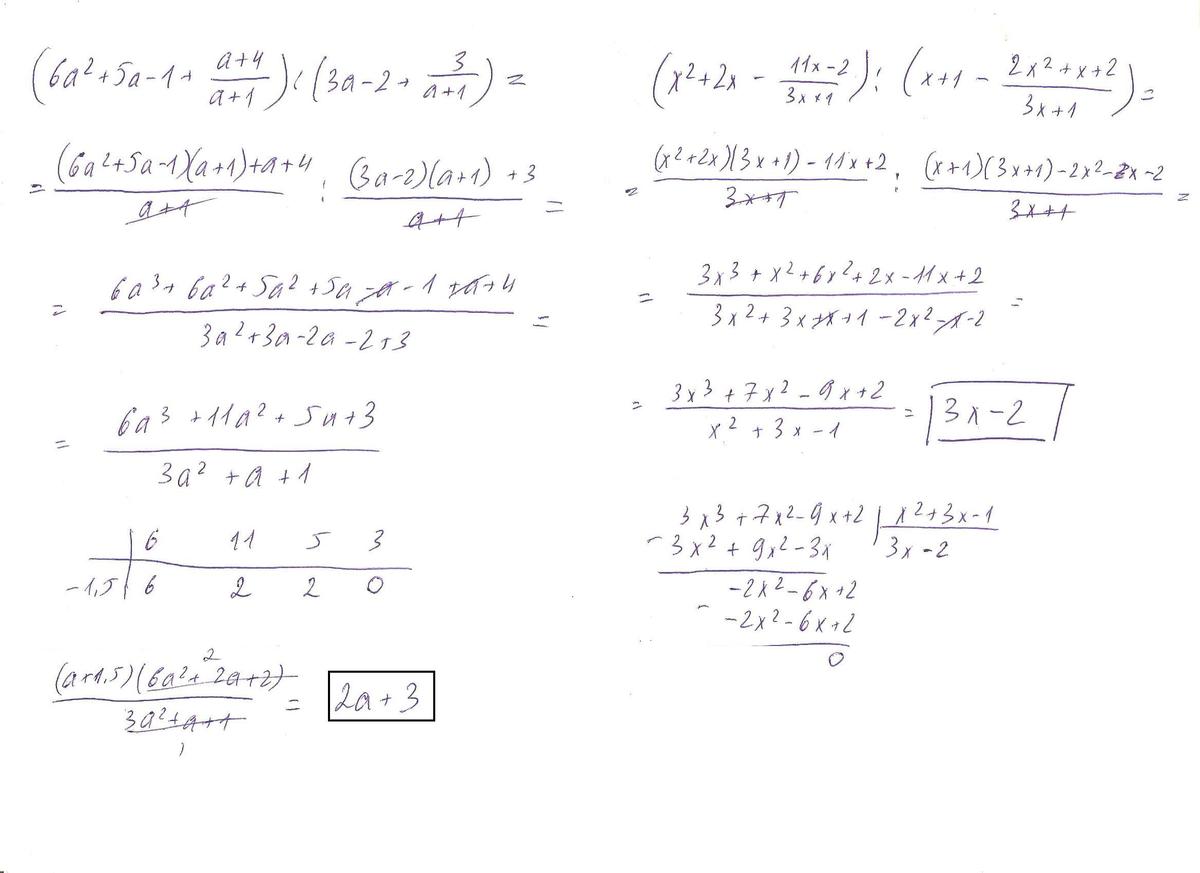 (6a²+5a-1+ (a+4)/(a+1)) : (3a-2+ 3/(a+1)) =
= ((6a²+5a-1)(a+1)+a+4)/(a+1) : ((3a-2)(a+1)+3)/(a+1) =
= (6a³+6a²+5a²+5a-a-1+a+4)/(3a²+3a-2a-2+3) =
= (6a³+11a²+5a+3)/(3a²+a+1)
6 11 5 3
-1,5 6 2 2 0
((a+1,5)(6a²+2a+2))/(3a²+a+1) = 2a+3
2
1
(x²+2x - (11x-2)/(3x+1)) : (x+1 - (2x²+x+2)/(3x+1)) =
= ((x²+2x)(3x+1)-11x+2)/(3x+1) : ((x+1)(3x+1)-2x²-x-2)/(3x+1) =
= (3x³+x²+6x²+2x-11x+2)/(3x²+3x+x+1-2x²-x-2) =
= (3x³+7x²-9x+2)/(x²+3x-1) = 3x-2
3x³+7x²-9x+2 | x²+3x-1
- 3x²+9x²-3x 3x-2
-2x²-6x+2
- -2x²-6x+2
0